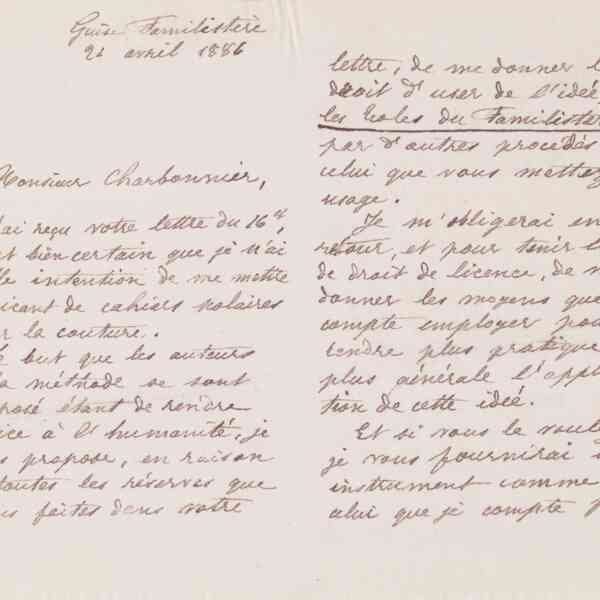 Guise Familistère
21 avril 1886
Monsieur Charbonnier,
ai reçu votre lettre du 16 ct,
bien certain que je n'ai
intention de me mettre
icant de cahiers scolaires
r la couture.
but que les auteurs
a méthode se sont
posé étant de rendre
ice à l'humanité, je
s propose, en raison
toutes les réserves que
us faites dans votre
lettre, de me donner l
droit d'user de l'idée,
les Ecoles du Familistèr
par d'autres procédés
celui que vous mettez
usage.
Je m'obligerai en
retour, et pour tenir l
de droit de licence, de v
donner les moyens que
compte employer pou
rendre plus pratique
plus générale l'appl
tion de cette idée.
Et si vous le voul
je vous fournirai
instrument comme
celui que je compte f